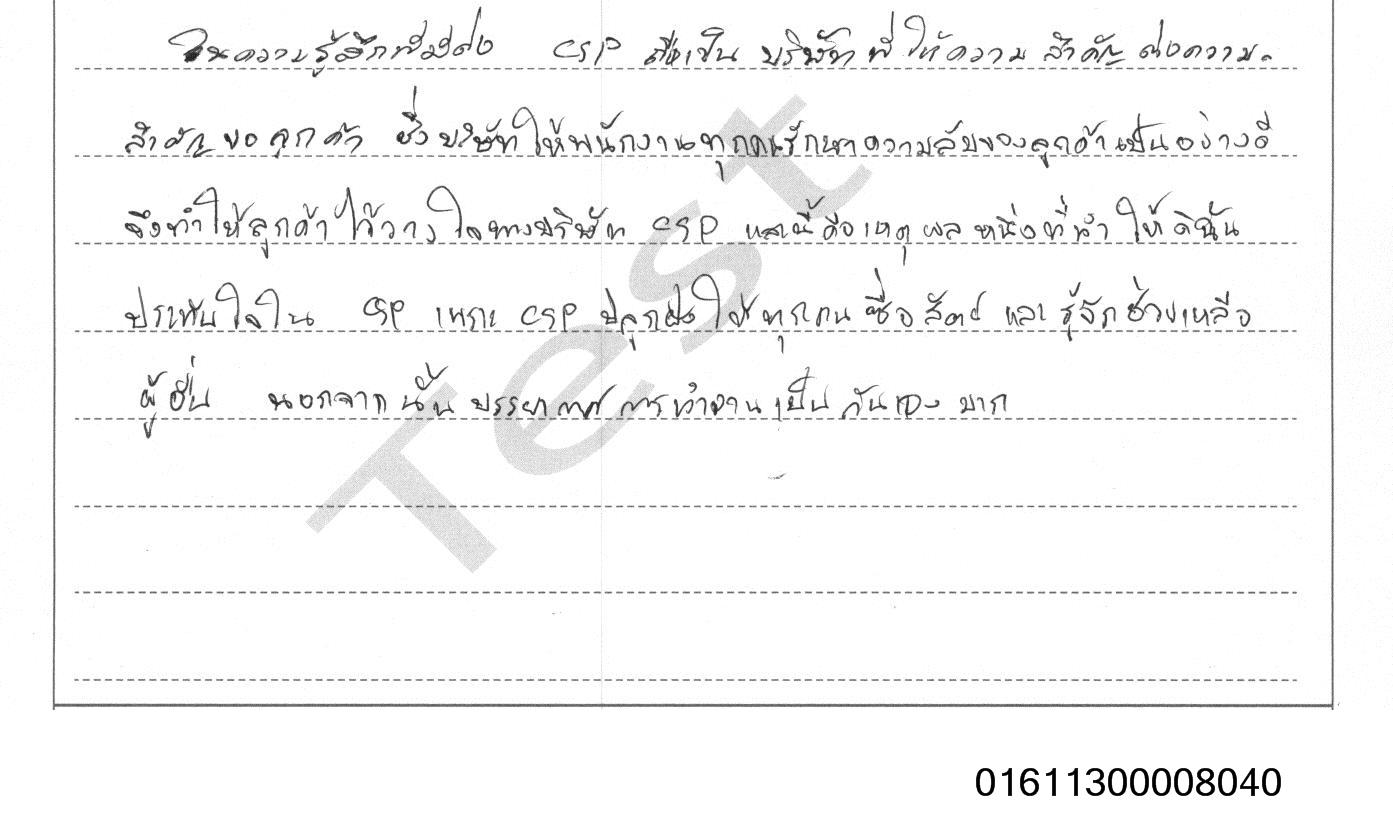 ในความรู้สึกที่มีต่อ CSP ถือเป็น บริษัทที่ให้ความ สำคัญ ต่อความ
สำคัญ ขอ ลูกค้า ซึ่งบริษัทให้พนักงานทุกคนรักษาความลับของลูกค้าเป็นอย่างดี
จึงทำให้ลูกค้าไว้วางใจทางบริษัท CSP และนี้คือเหตุผลหนึ่งที่ทำให้ดิฉัน
ประทับใจใน CSP เพราะ CSP ปลูกฝังให้ทุกคน ซื่อสัตย์ และ รู้จักช่วยเหลือ
ผู้อื่น นอกจากนั้น บรรยากาศการทำงานเป็นกันเองมาก
Test
01611300008040